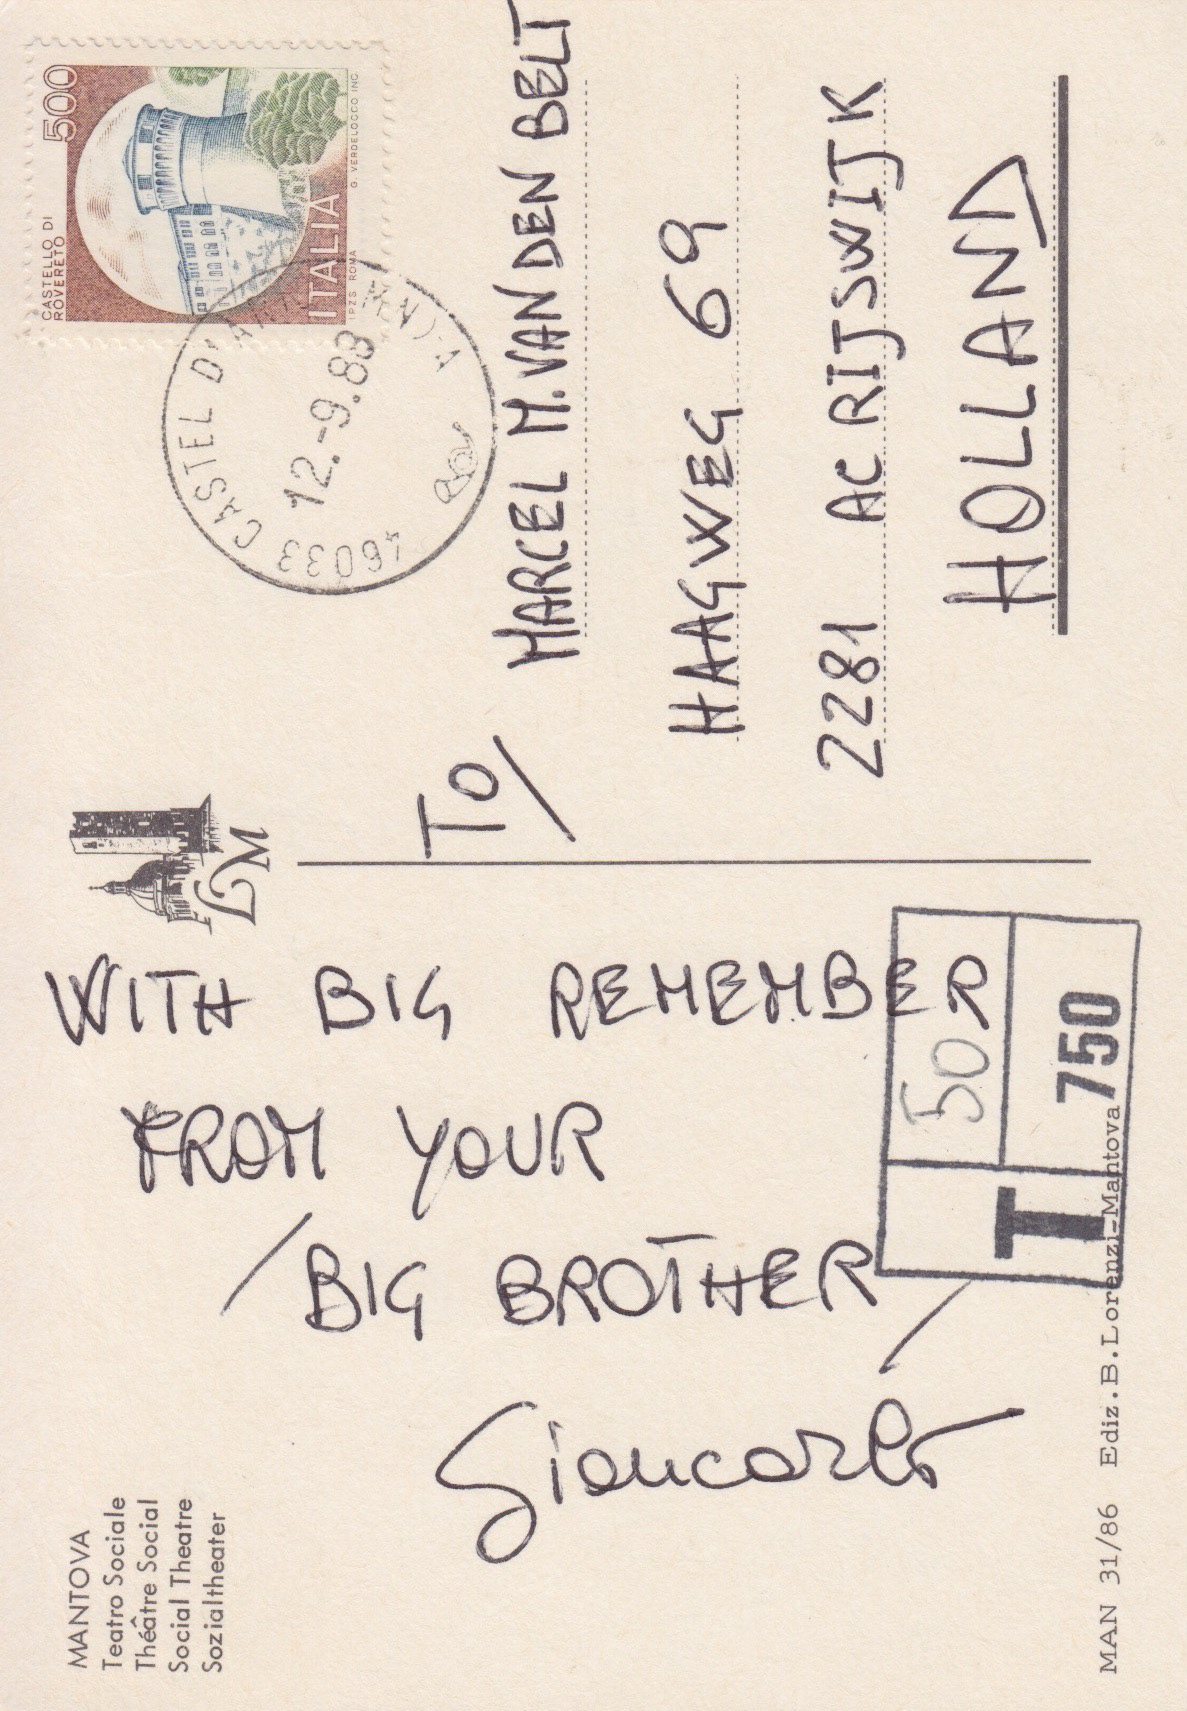 MANTOVA
Teatro Sociale
Théâtre Social
Social Theatre
Sozialtheater
LM
WITH BIG REMEMBER
FROM YOUR
/BIG BROTHER/
Giancarlo
MAN 31/86 Ediz.B.Lorenzi-Mantova
T
50
750
CASTELLO DI
ROVERETO
500
ITALIA
IPZS ROMA G. VERDELOCCO INC.
46033 CASTEL D' (MN) A
12.-9.88
TO/
MARCEL M. VAN DEN BELT
HAAGWEG 69
2281 AC RIJSWIJK
HOLLAND